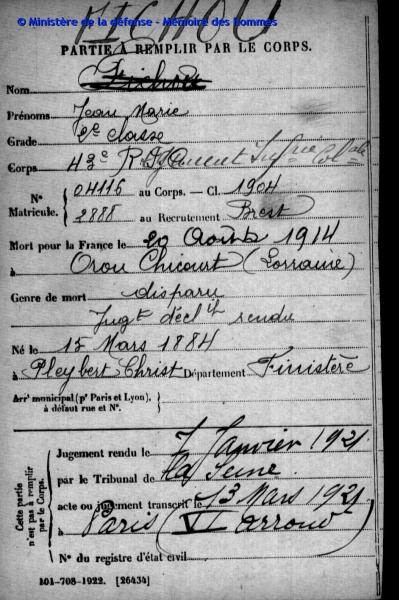 MICHOU
© Ministère de la défense - Mémoire des hommes
PARTIE À REMPLIR PAR LE CORPS.
Nom
Prénoms Jean Marie
Grade 2e classe
Corps 43e Régiment Infrie Colale
Nos Matricule. 04116 au Corps. — Cl. 1904
2888 au Recrutement Brest
Mort pour la France le 20 Août 1914
à Oron Chicourt (Lorraine)
Genre de mort disparu
Jugt décl if rendu
Né le 15 Mars 1884
à Pleybert Christ Département Finistère
Arrt municipal (pr Paris et Lyon),
à défaut rue et N°.
Cette partie n'est pas à remplir par le Corps.
Jugement rendu le 7 Janvier 1921
par le Tribunal de la Seine
acte ou jugement transcrit le 13 Mars 1921
à Paris (VI arrond)
N° du registre d'état civil
101-708-1922. [26434]